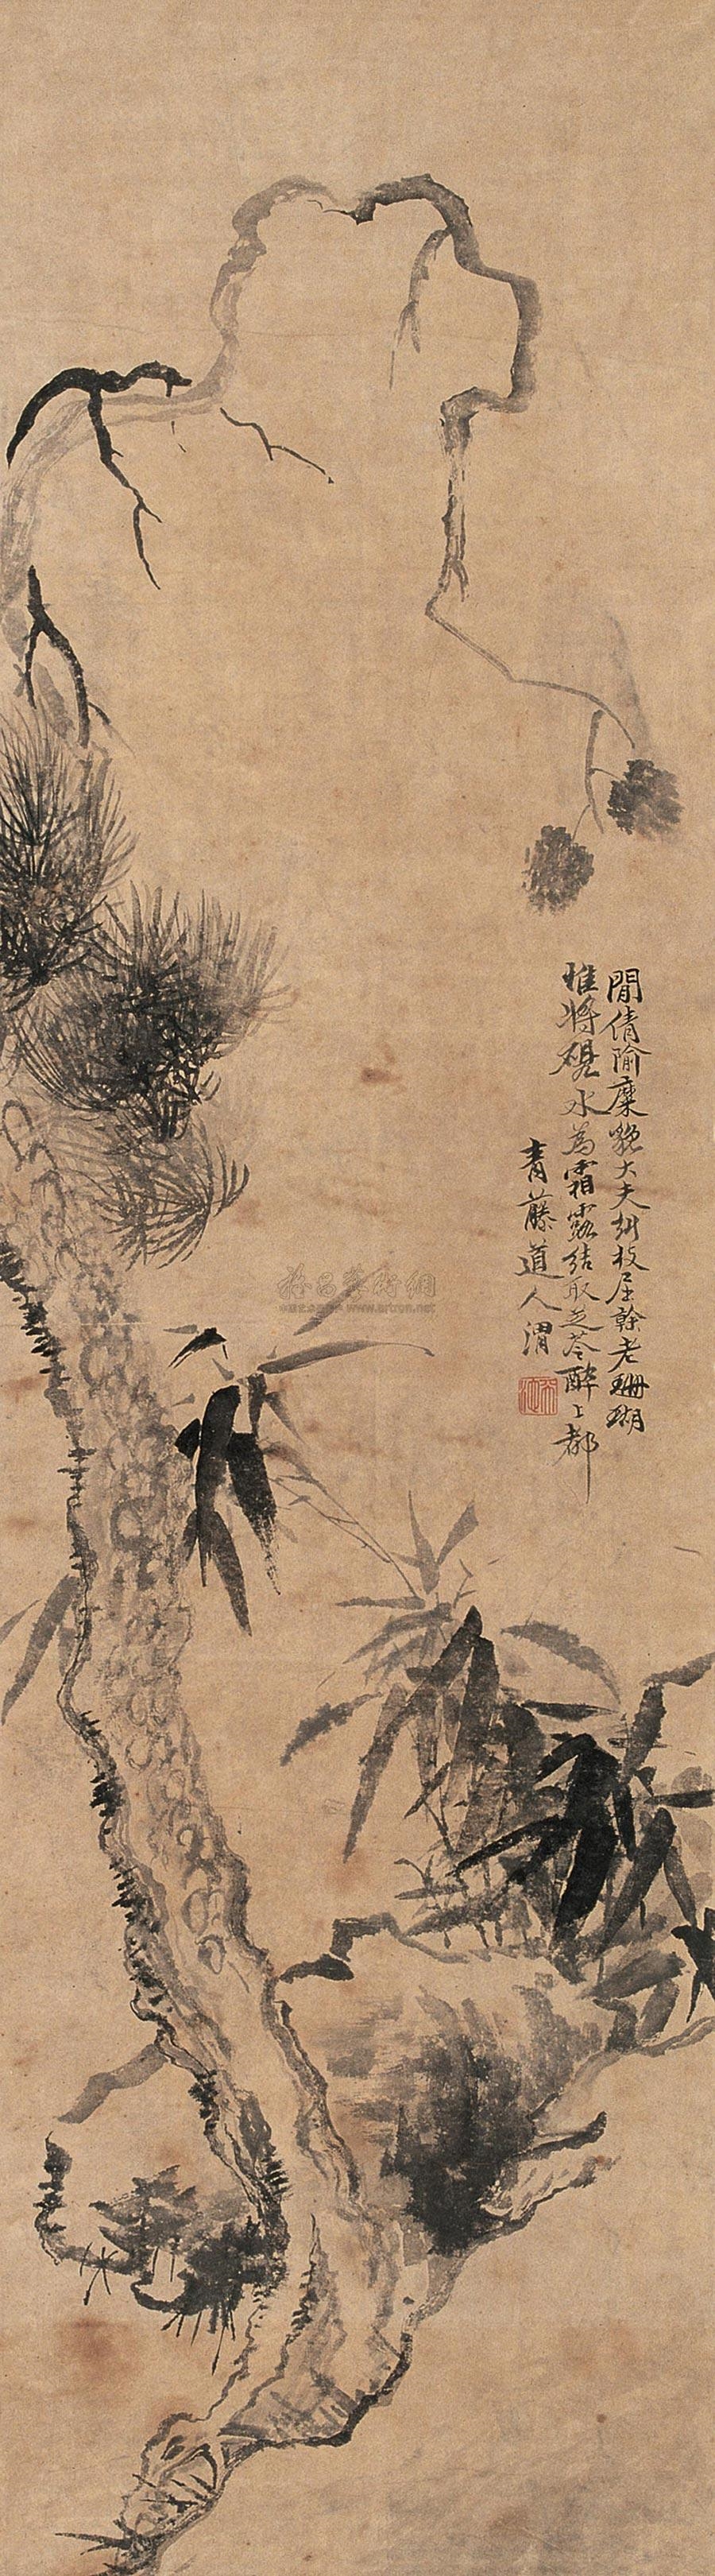 閒倩隃糜貌大夫糾枝屈幹老珊瑚
惟將硯水為霜露結取芝苓醉上都
青藤道人渭
雅昌藝術網
www.artron.net